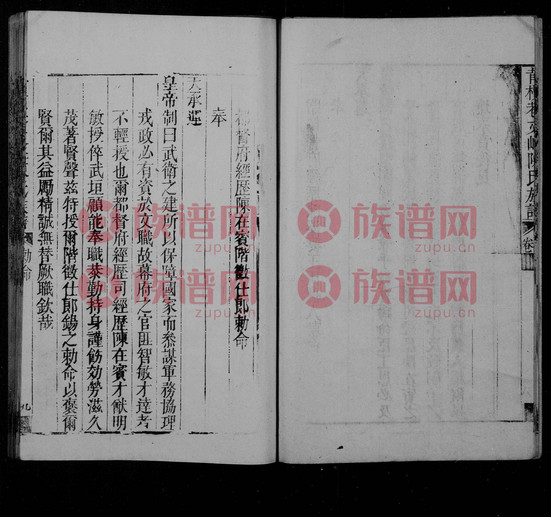 都督府經歷陳在賓階徵仕郎勅命
奉
天承運
皇帝制曰武衛之建所以保障國家而叅謀軍務協理
戎政必有資於文職故幕府之官匪智敏才達者
不輕授也爾都督府經歷司經歷陳在賓才猷明
敏授倅武垣顧能奉職恭勤持身謹飭効勞滋久
茂著賢聲兹特授爾階徵仕郎錫之勅命以褒爾
賢爾其益勵精誠無替厥職欽哉
勅命
九
陳氏族譜
卷
族谱网
zupu.cn
族谱网
zupu.cn
族谱网
zupu.cn
族谱网
zupu.cn